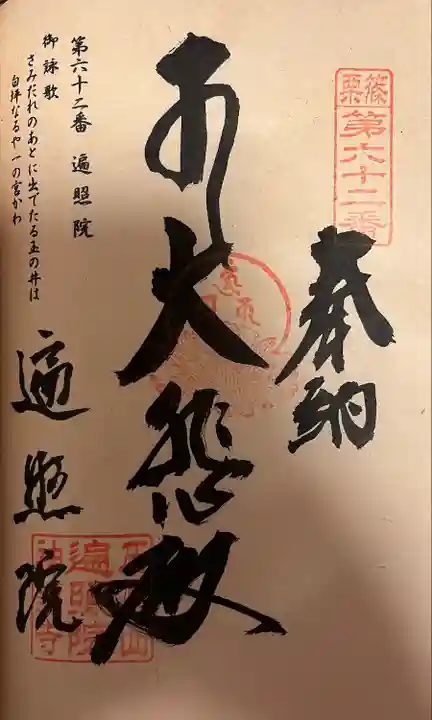 篠栗
第六十二番
奉納
大悲殿
第六十二番 遍照院
御詠歌
さみだれのあとに出でたる玉の井は
白坪なるや一の宮かわ
遍照院
遍照院